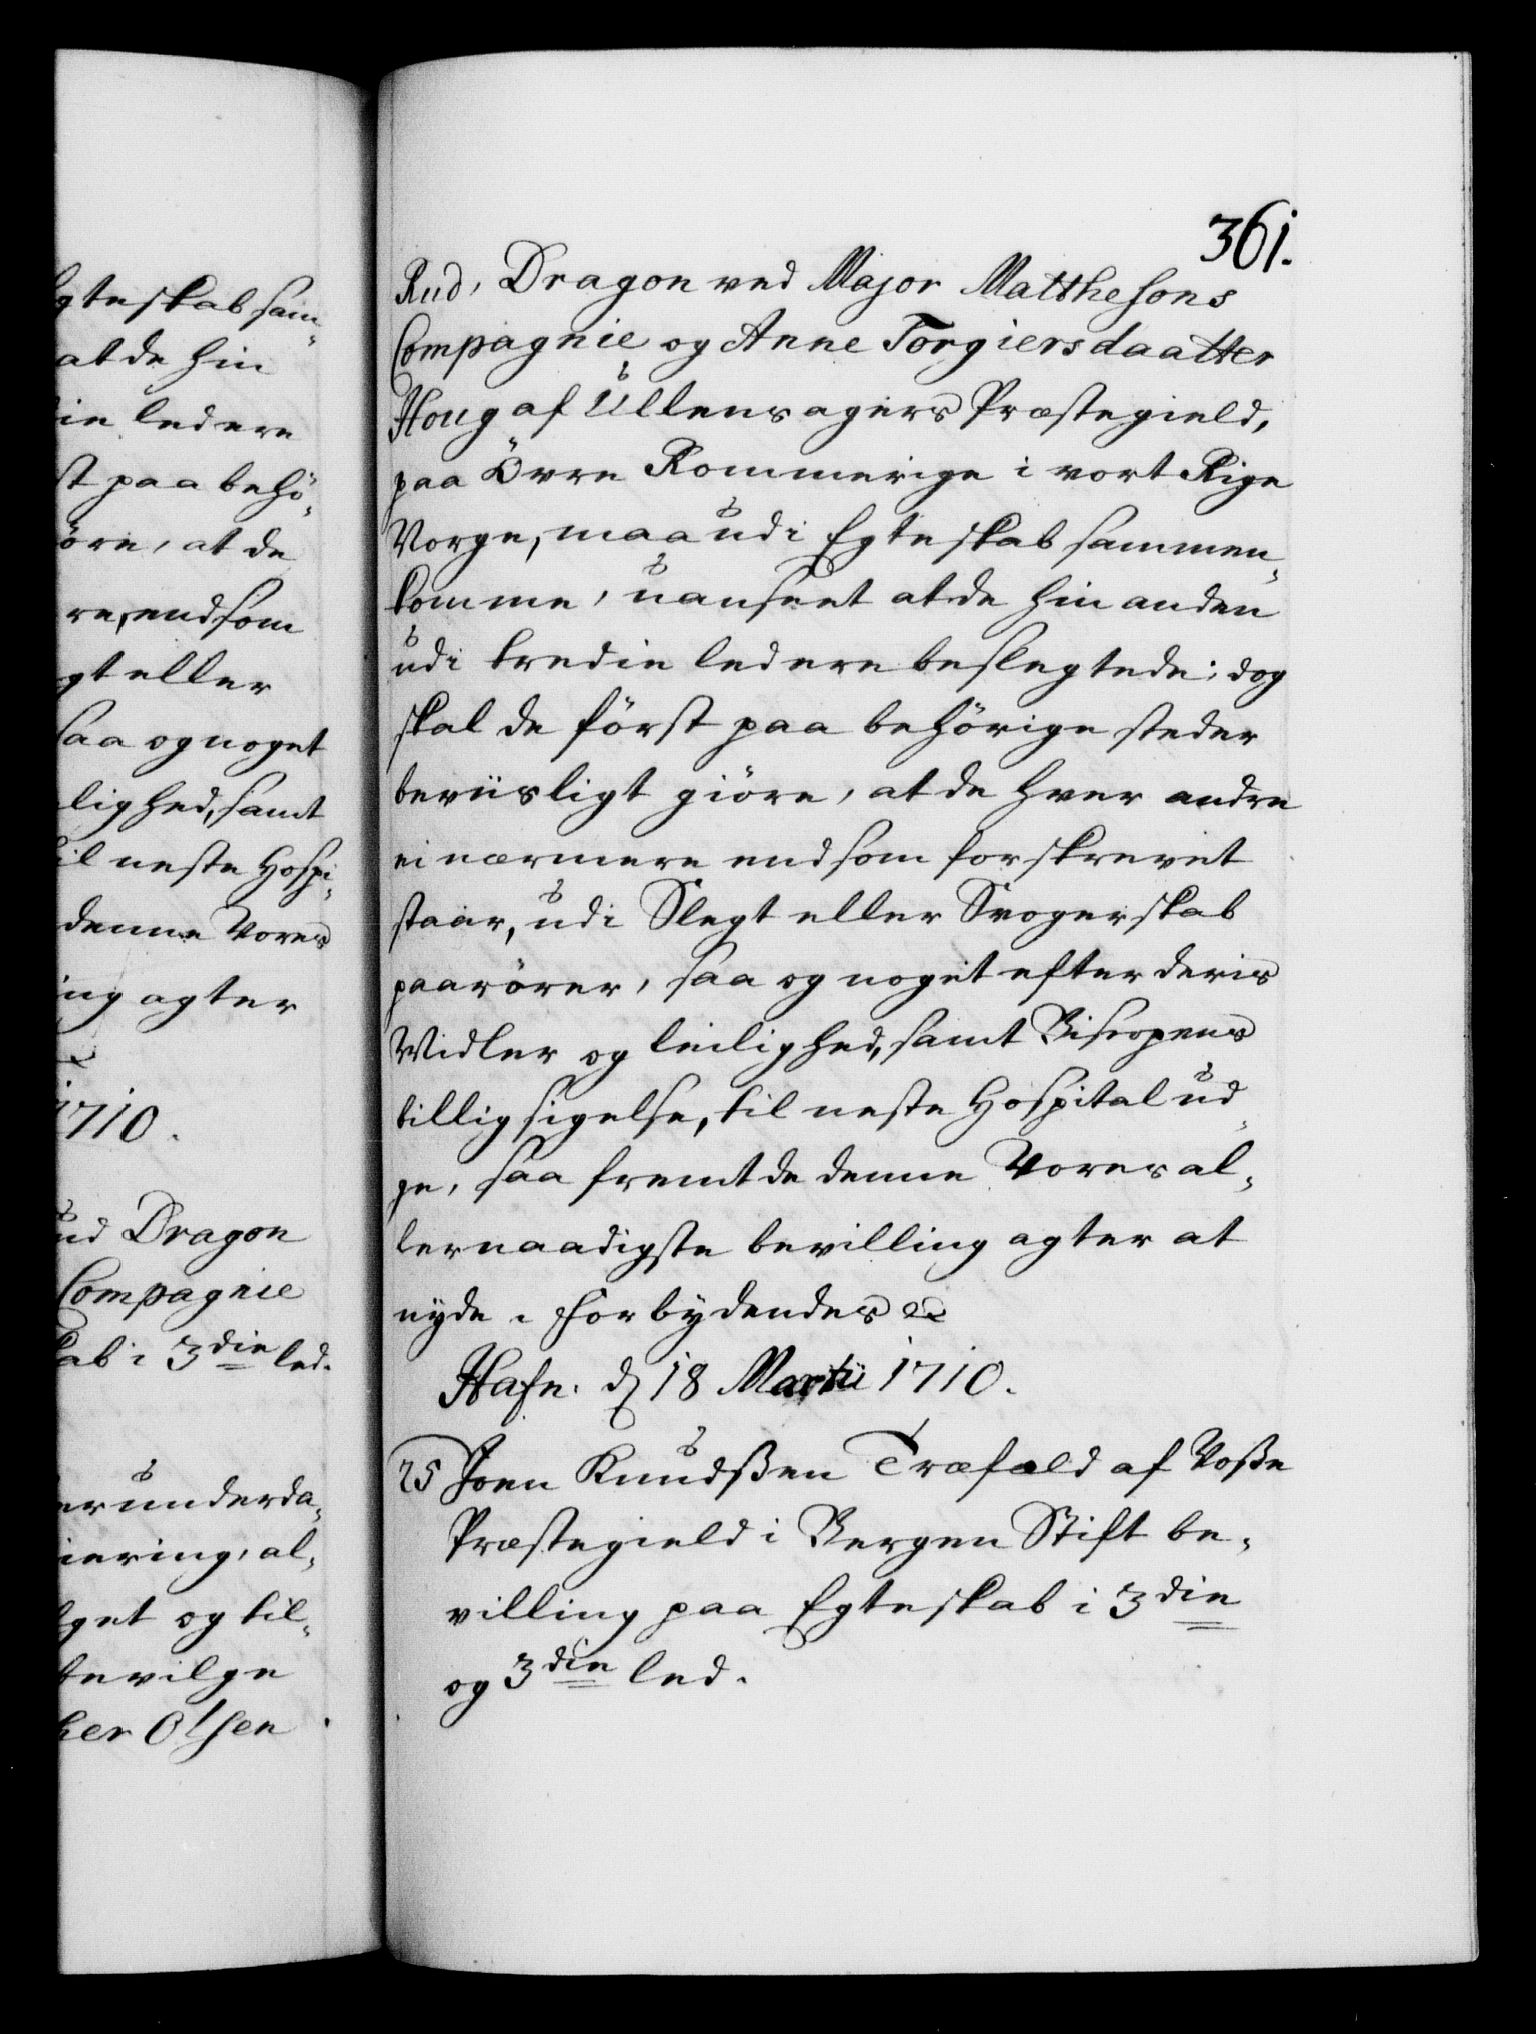 gteskab sam-
at de hin
ie led ere
st paa behö-
öre, at de
re, end som
gt eller
saa og noget
lighed, samt
il neste Hospi-
denne Vores
ing agter
1710.
ud Dragon
Compagnie
kab i 3die led.
er underda-
iering, al-
get og til-
bevilge
her Olsen
361.
Rud, Dragon ved Major Matthesons
Compagnie og Anne Torgiersdaatter
Houg af Ullensagers Præstegield,
paa Övre Rommerige i vort Rige
Norge, maa udi Egteskab sammen-
komme, uanseet at de hinanden
udi tredie led ere beslegtede; dog
skal de först paa behörige steder
beviisligt giöre, at de hver andre
ei nærmere end som forskrevet
staar, udi Slegt eller Svogerskab
paarörer, saa og noget efter deris
Midler og leilighed, samt Biscopens
tilligsigelse, til neste Hospital ud-
ge, saa fremt de denne Vores al-
lernaadigste bevilling agter at
nyde. Forbydendes etc
Hafn. d 18 Martii 1710.
25 Joen Knudsßen Træfald af Voße
Præstegield i Bergen Stift be-
villing paa Egteskab i 3die
og 3die led.